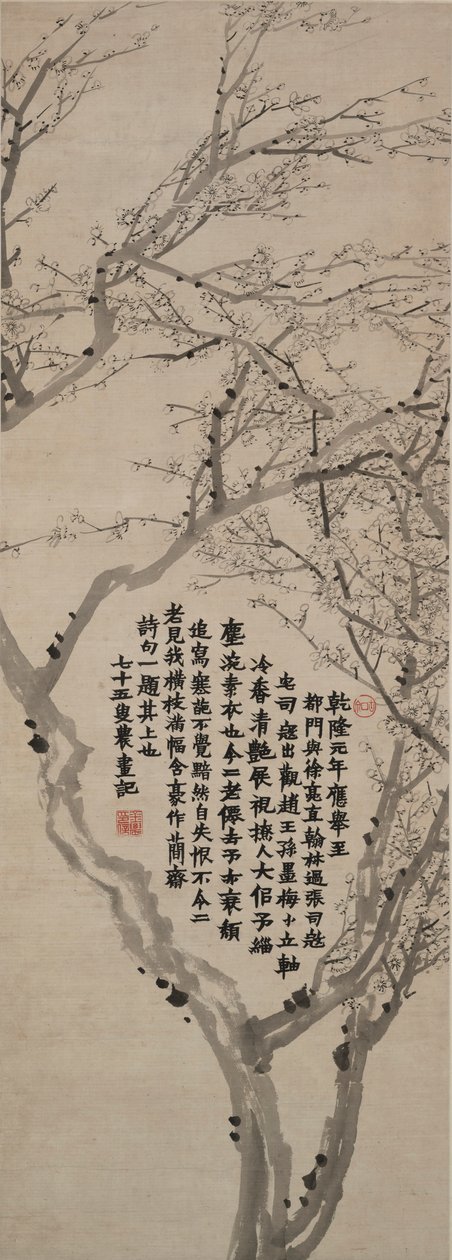 乾隆元年應舉至
都門與徐亮直翰林過張司寇
宅司寇出觀趙王孫墨梅小立軸
冷香清艷展視撩人大佰予緇
塵浣素衣也今二老僊去予亦衰頹
追寫寒葩不覺黯然自失恨不令二
老見我橫枝滿幅含豪作簡齋
詩句一題其上也
七十五叟農畫記